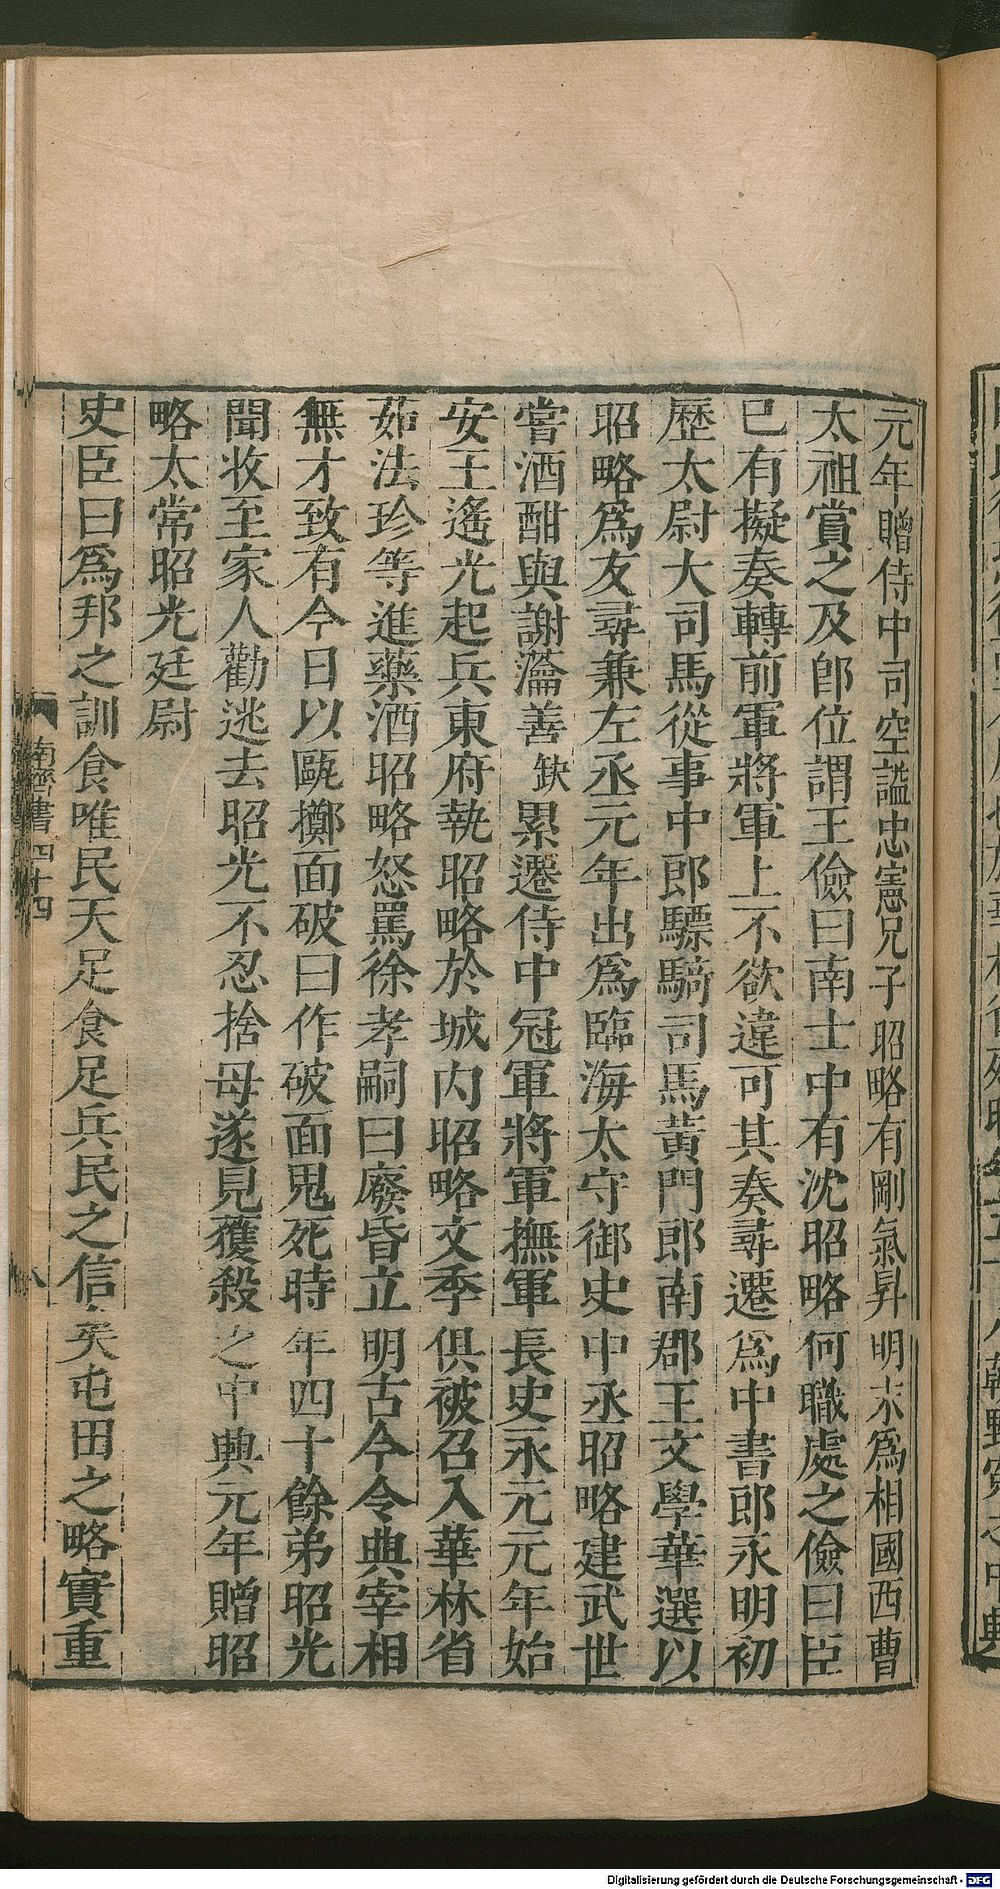 元年贈侍中司空謚忠憲兄子昭略有剛氣昇明末爲相國西曹
太祖賞之及卽位謂王儉曰南士中有沈昭略何職處之儉曰臣
已有擬奏轉前軍將軍上不欲違可其奏尋遷爲中書郎永明初
歷太尉大司馬從事中郎驃騎司馬黃門郎南郡王文學華選以
昭略爲友尋兼左丞元年出爲臨海太守御史中丞昭略建武世
嘗酒酣與謝瀹善缺累遷侍中冠軍將軍撫軍長史永元元年始
安王遙光起兵東府執昭略於城内昭略文季俱被召入華林省
茹法珍等進藥酒昭略怒罵徐孝嗣曰廢昏立明古今令典宰相
無才致有今日以甌擲面破曰作破面鬼死時年四十餘弟昭光
聞收至家人勸逃去昭光不忍捨母遂見獲殺之中興元年贈昭
略太常昭光廷尉
史臣曰爲邦之訓食唯民天足食足兵民之信矣屯田之略實重
南齊書四十四
八
Digitalisierung gefördert durch die Deutsche Forschungsgemeinschaft - DFG